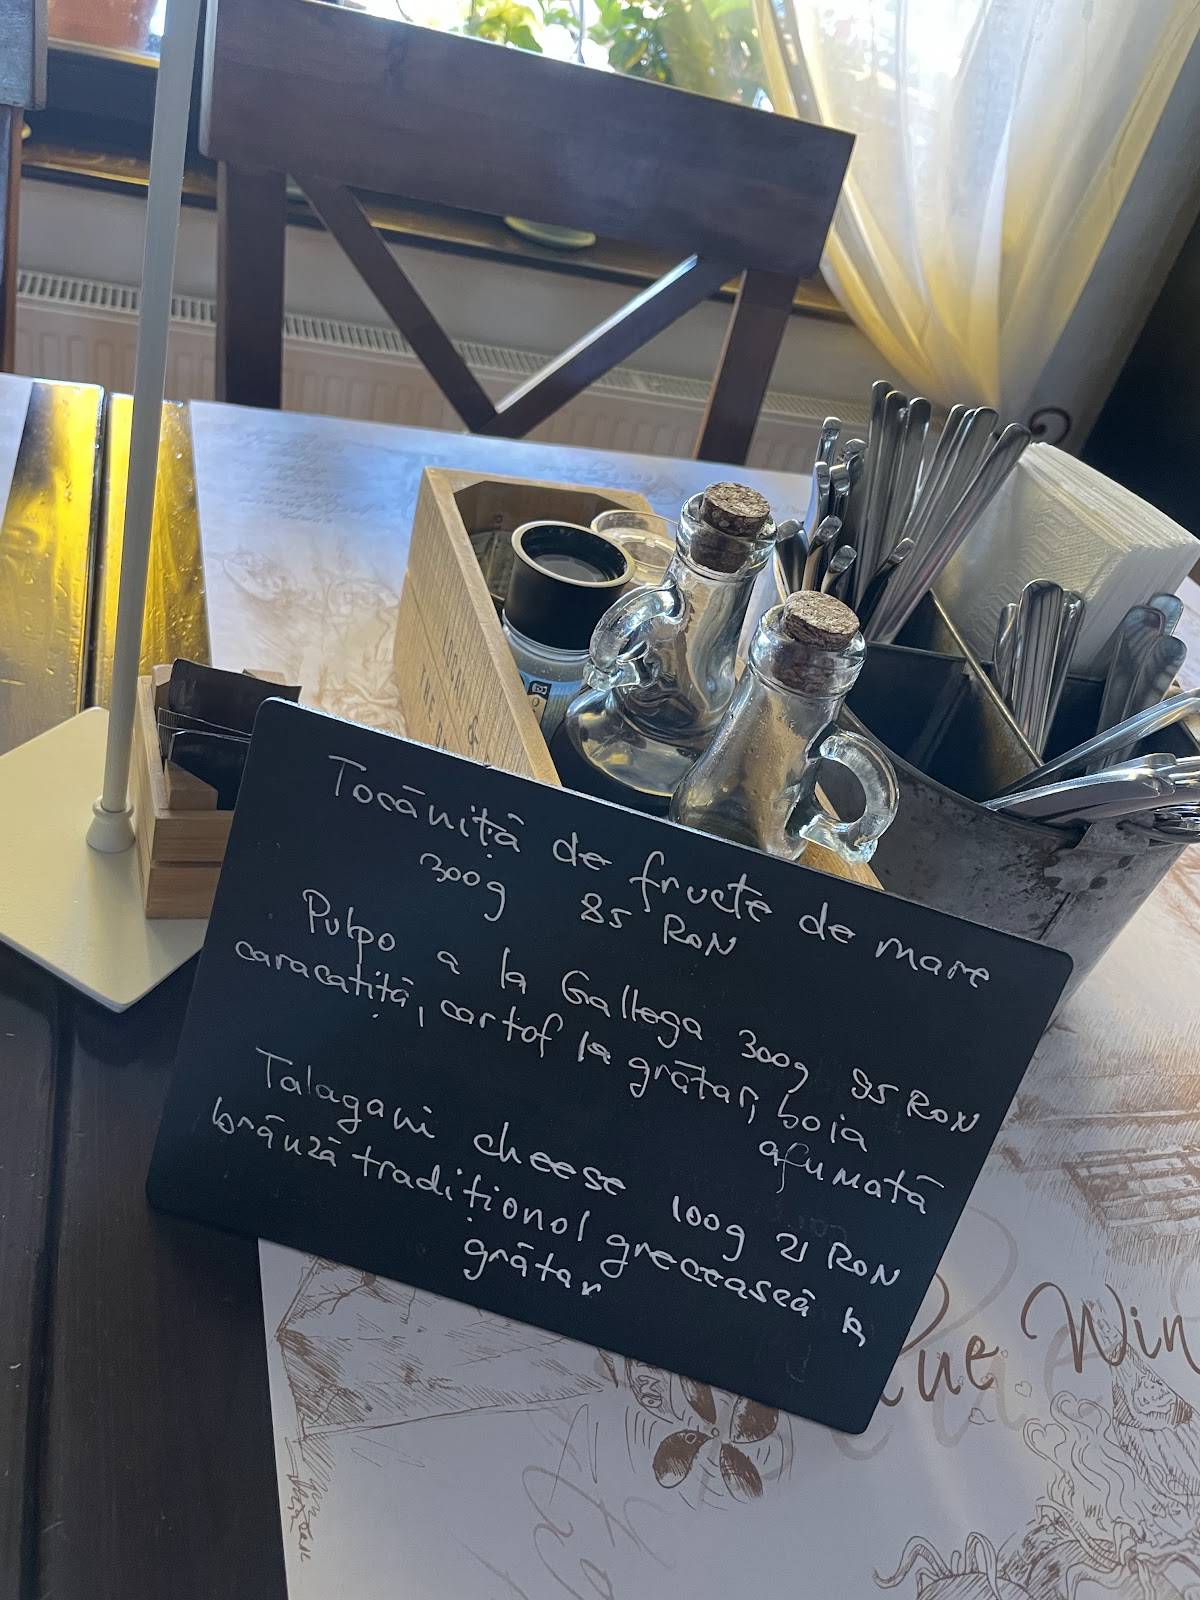 Tocăniță de fructe de mare
300g 85 RON
Pulpo a la Gallega 300g 95 RON
caracatiță, cartof la grătar, boia
afumată
Talagani cheese 100g 21 RON
brânză tradițional grecească la
grătar
Rue Win